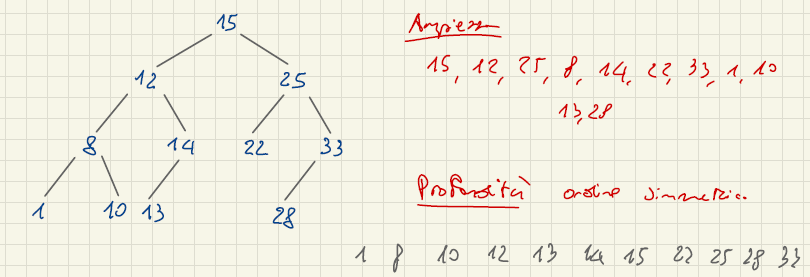 15
12 25
8 14 22 33
1 10 13 28
Ampiezza
15, 12, 25, 8, 14, 22, 33, 1, 10
13, 28
Profondità ordine simmetrico
1 8 10 12 13 14 15 22 25 28 33